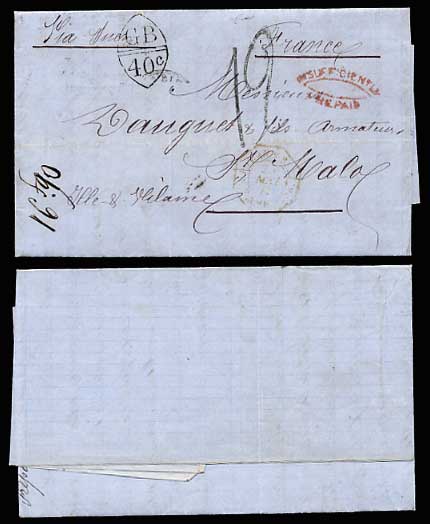 Via
GB
40c
France
INSUFFICIENTLY
PREPAID
19
Messieurs
Dauguet & fils Armateurs
St Malo
Ille & Vilaine